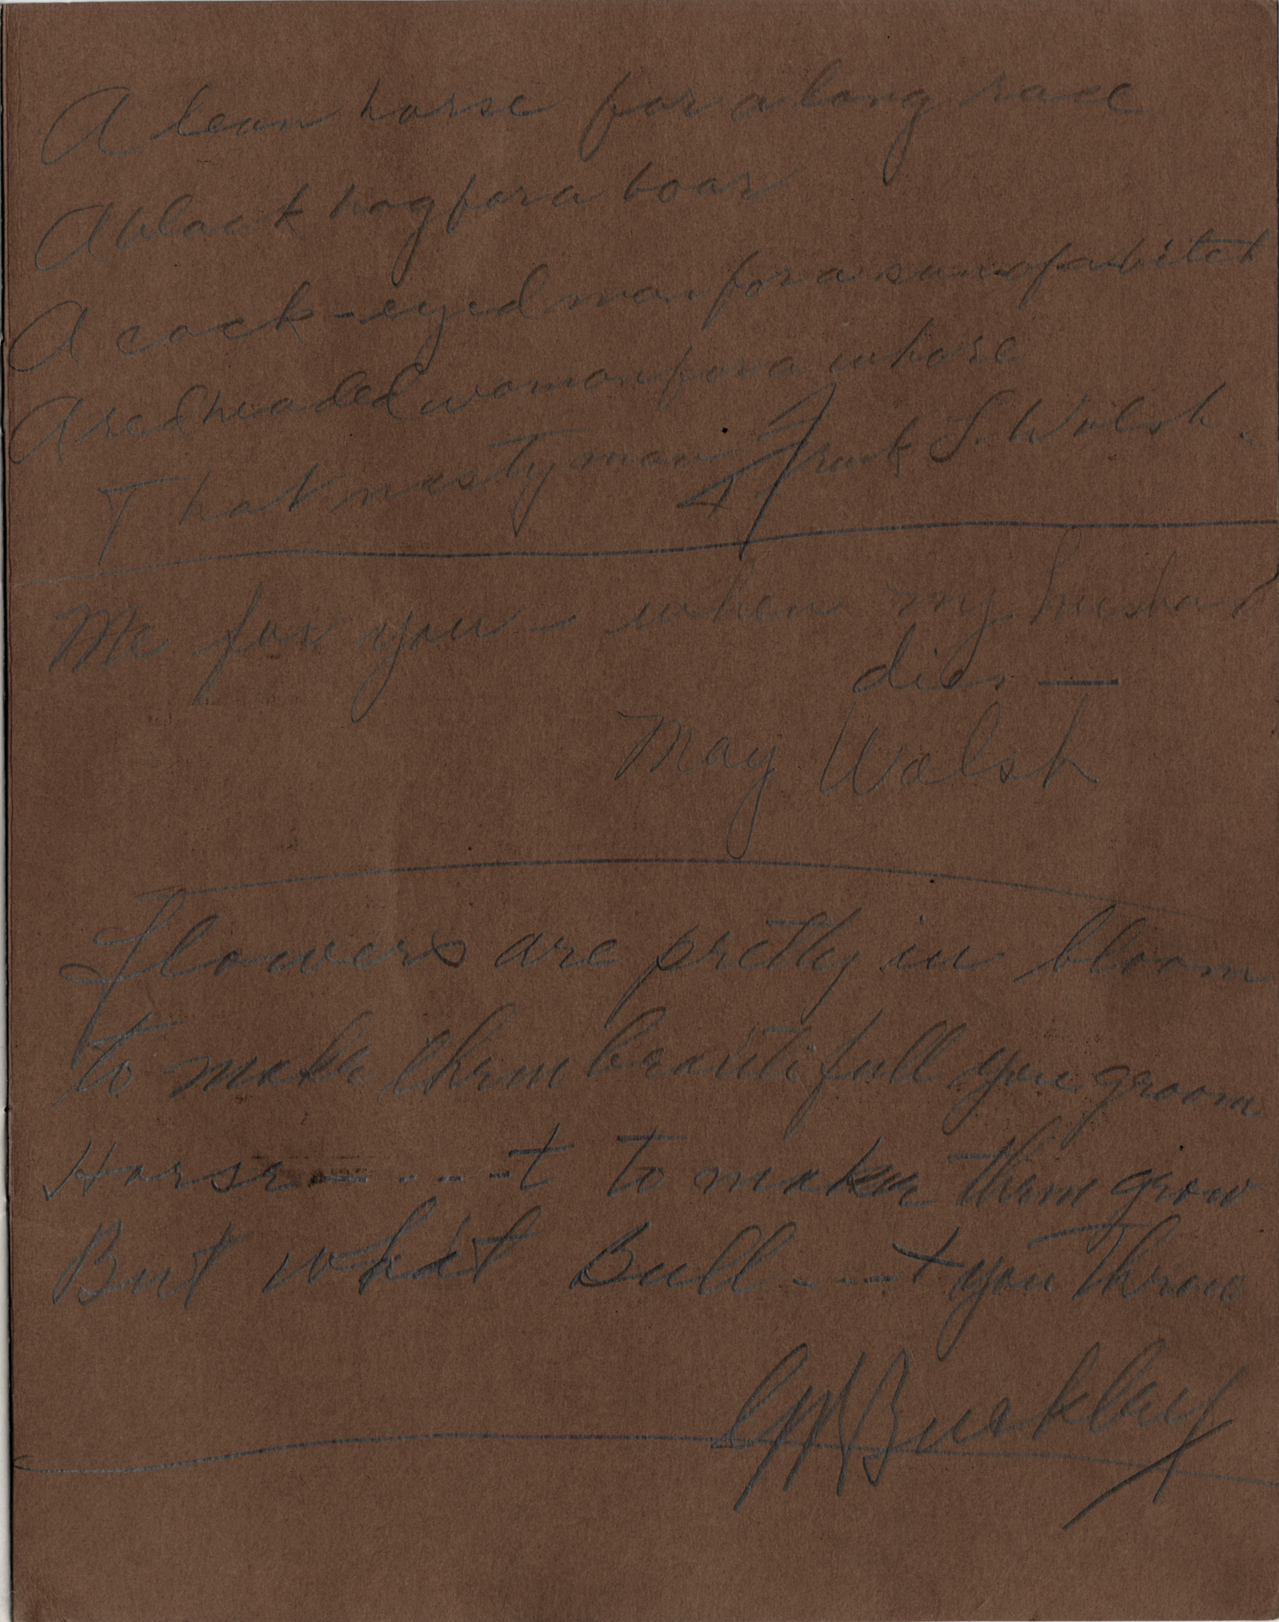 A lean horse for a long race
A black hog for a boar
A cock-eyed man for a sunofabitch
A redheaded woman for a whore
That nasty man Frank S. Walsh.
Me for you - when my husband
dies —
May Walsh
Flowers are pretty in bloom
To make them beautifull you groom
Horse-----t to make them grow
But what Bull----t you throw
Buckley